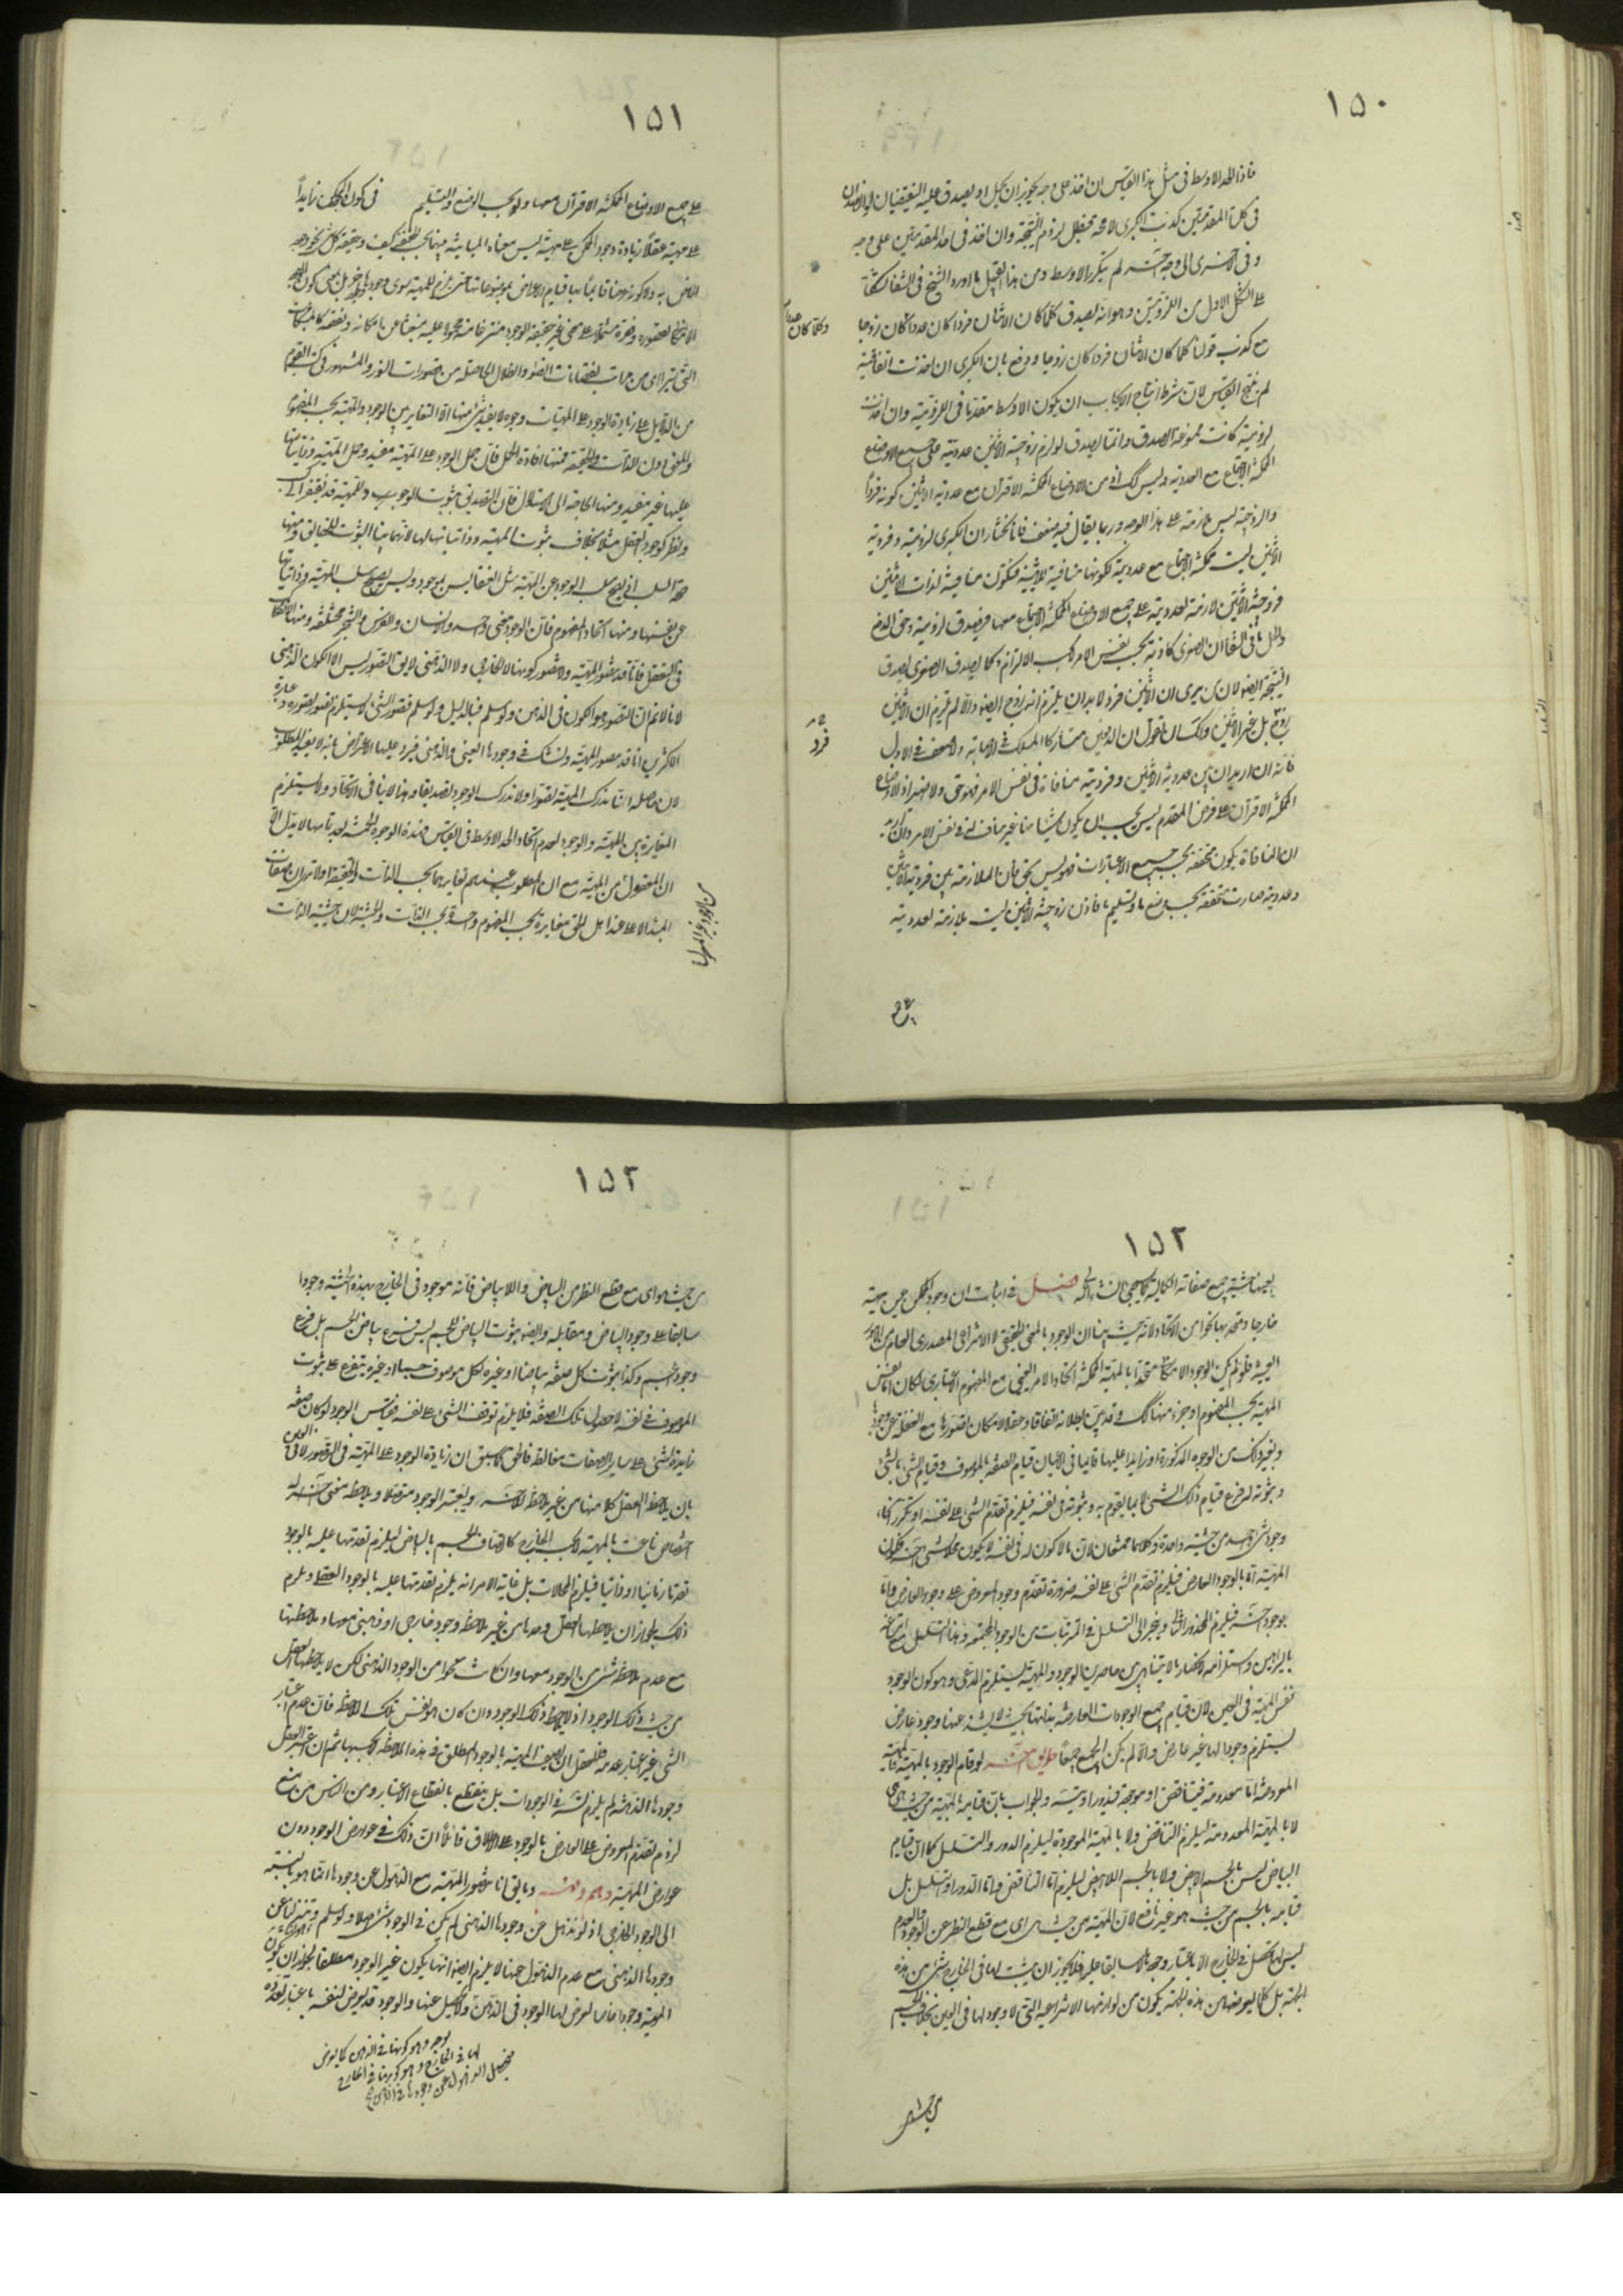 ١٥٠
فاذا الحد الاوسط فى مثل هذا القياس ان اخذ على وجه يجوز ان يصدق عليه النقيضان
فى كلتا المقدمتين كذبت الكبرى لا محة فبطل لزوم النتيجة وان اخذ فى احد المقدمتين على وجه
وفى الاخرى الى وجه آخر لم يتكرر الاوسط ومن هذا القبيل ما اورده الشيخ فى الشفا
على الشكل الاول من اللزوميتين وهو انه يصدق كلما كان الاثنان فردا كان عددا كان زوجا
وكلما كان عددا
مع كذب قولنا كلما كان الاثنان فردا كان زوجا ودفع بان الكبرى ان اخذت اتفاقية
لم ينتج القياس لان شرط انتاج الايجاب ان يكون الاوسط مقدما فى اللزومية وان اخذت
لزومية كانت ممنوعة الصدق وانما يصدق لو لزم زوجية الاثنين عددية على جميع الاوضاع
الممكنة الاجتماع مع العددية وليس كك اذ من الاوضاع الممكنة الاقتران مع عددية الاثنين كونه فردا
والزوجية ليس بلازمة على هذا الوجه وربما يقال فيه ضعف فانا نختار ان الكبرى لزومية وفردية
الاثنين ليست ممكنة الاجتماع مع عدديته لكونها منافية للاثنينية فتكون منافية لذات الاثنين
فزوجية الاثنين لازمة لعدديته على جميع الاوضاع الممكنة الاجتماع معها فيصدق لزومية وحق الدفع
ما قال فى الشفا ان الصغرى كاذبة بحسب نفس الامر
النتيجة ايضا لان من يرى ان الاثنين فرد لا بد ان يلتزم انه زوج ايضا والا لم يلتزم ان الاثنين
فرد
فانه ان اريد ان بين عددية الاثنين وفرديته منافاة فى نفس الامر فهو حق
الممكنة الاقتران على فرض المقدم ليس يجب ان يكون شيئا منها غير مناف له فى نفس الامر
ان المنافاة يكون متحققة بحسب جميع الاعتبارات فهو ليس بحق فان الملازمة بين فردية الاثنين
وعدديته صارت متحققة بحسب وضع ما وتسليم ما فاذن زوجية الاثنين ليست بلازمة لعدديته
١٥١
على جميع الاوضاع الممكنة الاقتران معها ولو بحسب الوضع والتسليم فى كون وجود الممكن زايدا
على مهيته عقلا زيادة وجود الممكن على مهيته ليس معناه المباينة بينهما بحسب الحقيقة كيف وحقيقة كل شئ نحو وجوده
الخاص به ولا كونه عرضا قائما بها قيام الاعراض بموضوعاتها حتى يلزم للمهية سوى وجودها
من الدلايل على زيادة الوجود على المهيات وجوه لا يفيد شئ منها الا التغاير بين الوجود والمهية بحسب المفهوم
والمعنى دون الذات والحقيقة فمنها افادة الحمل فان حمل الوجود على المهية مفيد وحمل المهية وذاتياتها
عليها غير مفيد ومنها الحاجة الى الاستدلال فان التصديق بثبوت الوجود للمهية قد يفتقر الى كسب
ونظر كوجود العقل مثلا بخلاف ثبوت المهية وذاتياتها لها لانهما بينا الثبوت لها ومنها
صحة السلب اذ يصح سلب الوجود عن المهية مثل العنقا ليس بموجود وليس يصح سلب المهية وذاتياتها
عن نفسها ومنها اتحاد المفهوم فان الوجود معنى واحد والانسان والفرس والشجر مختلفة ومنها الانفكاك
فى التعقل فانا قد نتصور المهية ولا نتصور كونها لا الخارجى ولا الذهنى لا يق التصور ليس الا الكون الذهنى
لانا لا نم ان التصور هو الكون فى الذهن ولو سلم فبالدليل ولو سلم فتصور الشئ لا يستلزم تصور تصوره وعبارة
الاكثرين انا قد نتصور المهية ونشك فى وجودها العينى والذهنى فيرد عليها الاعتراض بانه لا يفيد المطلوب
لان حاصله انا ندرك المهية تصورا ولا ندرك الوجود تصديقا وهذا لا ينافى الاتحاد ولا يستلزم
المغايرة بين المهية والوجود لعدم اتحاد الحد الاوسط فى القياس وهذه الوجوه الخمسة بعد تمامها لا يدل الا
ان المعقول من الوجود غير المعقول من المهية مع ان المطلوب عندهم تغايرهما بحسب الذات والحقيقة اولا ترى ان صفات
المبدا الاعلى عند اهل الحق متغايرة بحسب المفهوم واحدة بحسب الذات والحيثية لان حيثية الذات
١٥٢
بعينها حيثية جميع صفاته الكمالية كما سيجئ ان شاء الله فصل فى اثبات ان وجود الممكن عين مهيته
خارجا ومتحد بها نحوا من الاتحاد لانه حيث بينا ان الوجود بالمعنى الحقيقى لا الانتزاعى المصدرى العام من الامور
العينية فلو لم يكن الوجود الامكانى متحدا بالمهية الممكنة اتحاد الامر العينى مع المفهوم الاعتبارى لكان اما نفس
المهية بحسب المفهوم او جزء منها كك وقد تبين بطلانه اتفاقا وعقلا لامكان تصورها مع الغفلة عن وجودها
وبغير ذلك من الوجوه المذكورة او زايدا عليها قايما فى الاعيان قيام الصفة بالموصوف وقيام الشئ بالشئ
وثبوته له فرع قيام ذلك الشئ لا بما يقوم به وثبوته فى نفسه فيلزم تقدم الشئ على نفسه او تكرر انحاء
وجود شئ واحد من حيثية واحدة وكلاهما ممتنعان لان ما لا كون له فى نفسه لا يكون محلا لشئ آخر فكون
المهية اما بالوجود العارض فيلزم تقدم الشئ على نفسه ضرورة تقدم وجود المعروض على وجود العارض واما
بوجود آخر فيلزم المحذور الثانى وينجر الى التسلسل فى المترتبات من الوجود المجتمعة وهذا التسلسل مع امتناعه
بالبراهين واستلزامه لانحصار ما لا يتناهى بين حاصرين الوجود والمهية يستلزم المدعى وهو كون الوجود
نفس المهية فى العين لان قيام جميع الوجودات العارضة بذاتها بحيث لا يشذ عنها وجود عارض
يستلزم وجودا لها غير عارض والا لم يكن الجميع جميعا طريق آخر لو قام الوجود بالمهية فالمهية
المعروضة اما معدومة فيتناقض او موجودة فيدور او يتس والجواب بان قيامه بالمهية من حيث هى هى
لا بالمهية المعدومة ليلزم التناقض ولا بالمهية الموجودة ليلزم الدور والتسلسل كما ان قيام
البياض ليس بالجسم الابيض ولا بالجسم اللاابيض ليلزم اما التناقض واما الدور او التسلسل بل
قيامه بالجسم من حيث هو غير نافع لان المهية من حيث هى اى مع قطع النظر عن الوجود والعدم
ليس لها تحصل فى الخارج الا باعتبار وجودها لا سابقا عليه فلا يجوز ان يثبت لها فى الخارج شئ من هذه
الجهة بل كلما يعرضها من هذه الجهة يكون من لوازمها الانتزاعية التى لا وجود لها فى العين بخلاف الجسم
من حيث هو
١٥٢
من حيث هو اى مع قطع النظر عن البياض واللابياض فانه موجود فى الخارج بهذه الحيثية وجودا
سابقا على وجود البياض ومقابله وايضا ثبوت البياض للجسم ليس فرع بياض الجسم بل فرع
وجود الجسم وكذا ثبوت كل صفة بياضا او غيره لكل موصوف جسما او غيره يتفرع على ثبوت
الموصوف فى نفسه لا حصول تلك الصفة فلا يلزم توقف الشئ على نفسه فقياس الوجود لو كان صفة
زايدة لشئ على ساير الصفات مغالطة فالحق كما سبق ان زيادة الوجود على المهية فى التصور لا فى العين
بان يلاحظ العقل كلا منهما من غير ملاحظة الآخر ويعتبر الوجود منفصلا ويلاحظ معنى له
اختصاص ناعت بالمهية لا بحسب الخارج كاتصاف الجسم بالبياض ليلزم تقدمها عليه بالوجود
تقدما زمانيا او ذاتيا فيلزم المحالات بل غاية الامر انه يلزم تقدمها عليه بالوجود العقلى ويلتزم
ذلك لجواز ان يلاحظها العقل وحدها من غير ملاحظة وجود خارجى او ذهنى معها وملاحظتها
مع عدم ملاحظة شئ من الوجود معها وان كانت نحوا من الوجود الذهنى لكن لا يلاحظها العقل
من حيث ذلك الوجود اذ لا يلاحظ ذلك الوجود وان كان هو نفس تلك الملاحظة فان عدم اعتبار
الشئ غير اعتبار عدمه فللعقل ان يصف المهية بالوجود المطلق فى هذه الملاحظة لا بحسبها ثم ان اعتبر العقل
وجودها الذهنى لم يلزم تس فى الوجودات بل ينقطع بانقطاع الاعتبار ومن الناس من منع
لزوم تقدم المعروض على العارض بالوجود على الاطلاق قائلا ان ذلك فى عوارض الوجود دون
عوارض المهية وهم وتنبيه وما يق انا نتصور المهية مع الذهول عن وجودها انما هو بالنسبة
الى الوجود الخارجى اذ لو نذهل عن وجودها الذهنى لم يكن فى الوجود شئ اصلا ولو سلم ذهولنا عن
وجودها الذهنى مع عدم الذهول عنها لا يلزم ايضا انها يكون غير الوجود مطلقا لجواز ان يكون
المهية وجودا خاصا يعرض لها الوجود فى الذهن ولا يحصل عنها والوجود قد يعرض لنفسه باعتبار تعدده
بوجه وهو كونها فى الذهن كما يعرض
لها فى الخارج وهو كونها فى الخارج
فيحصل الذهول عن وجودها فى الذهن